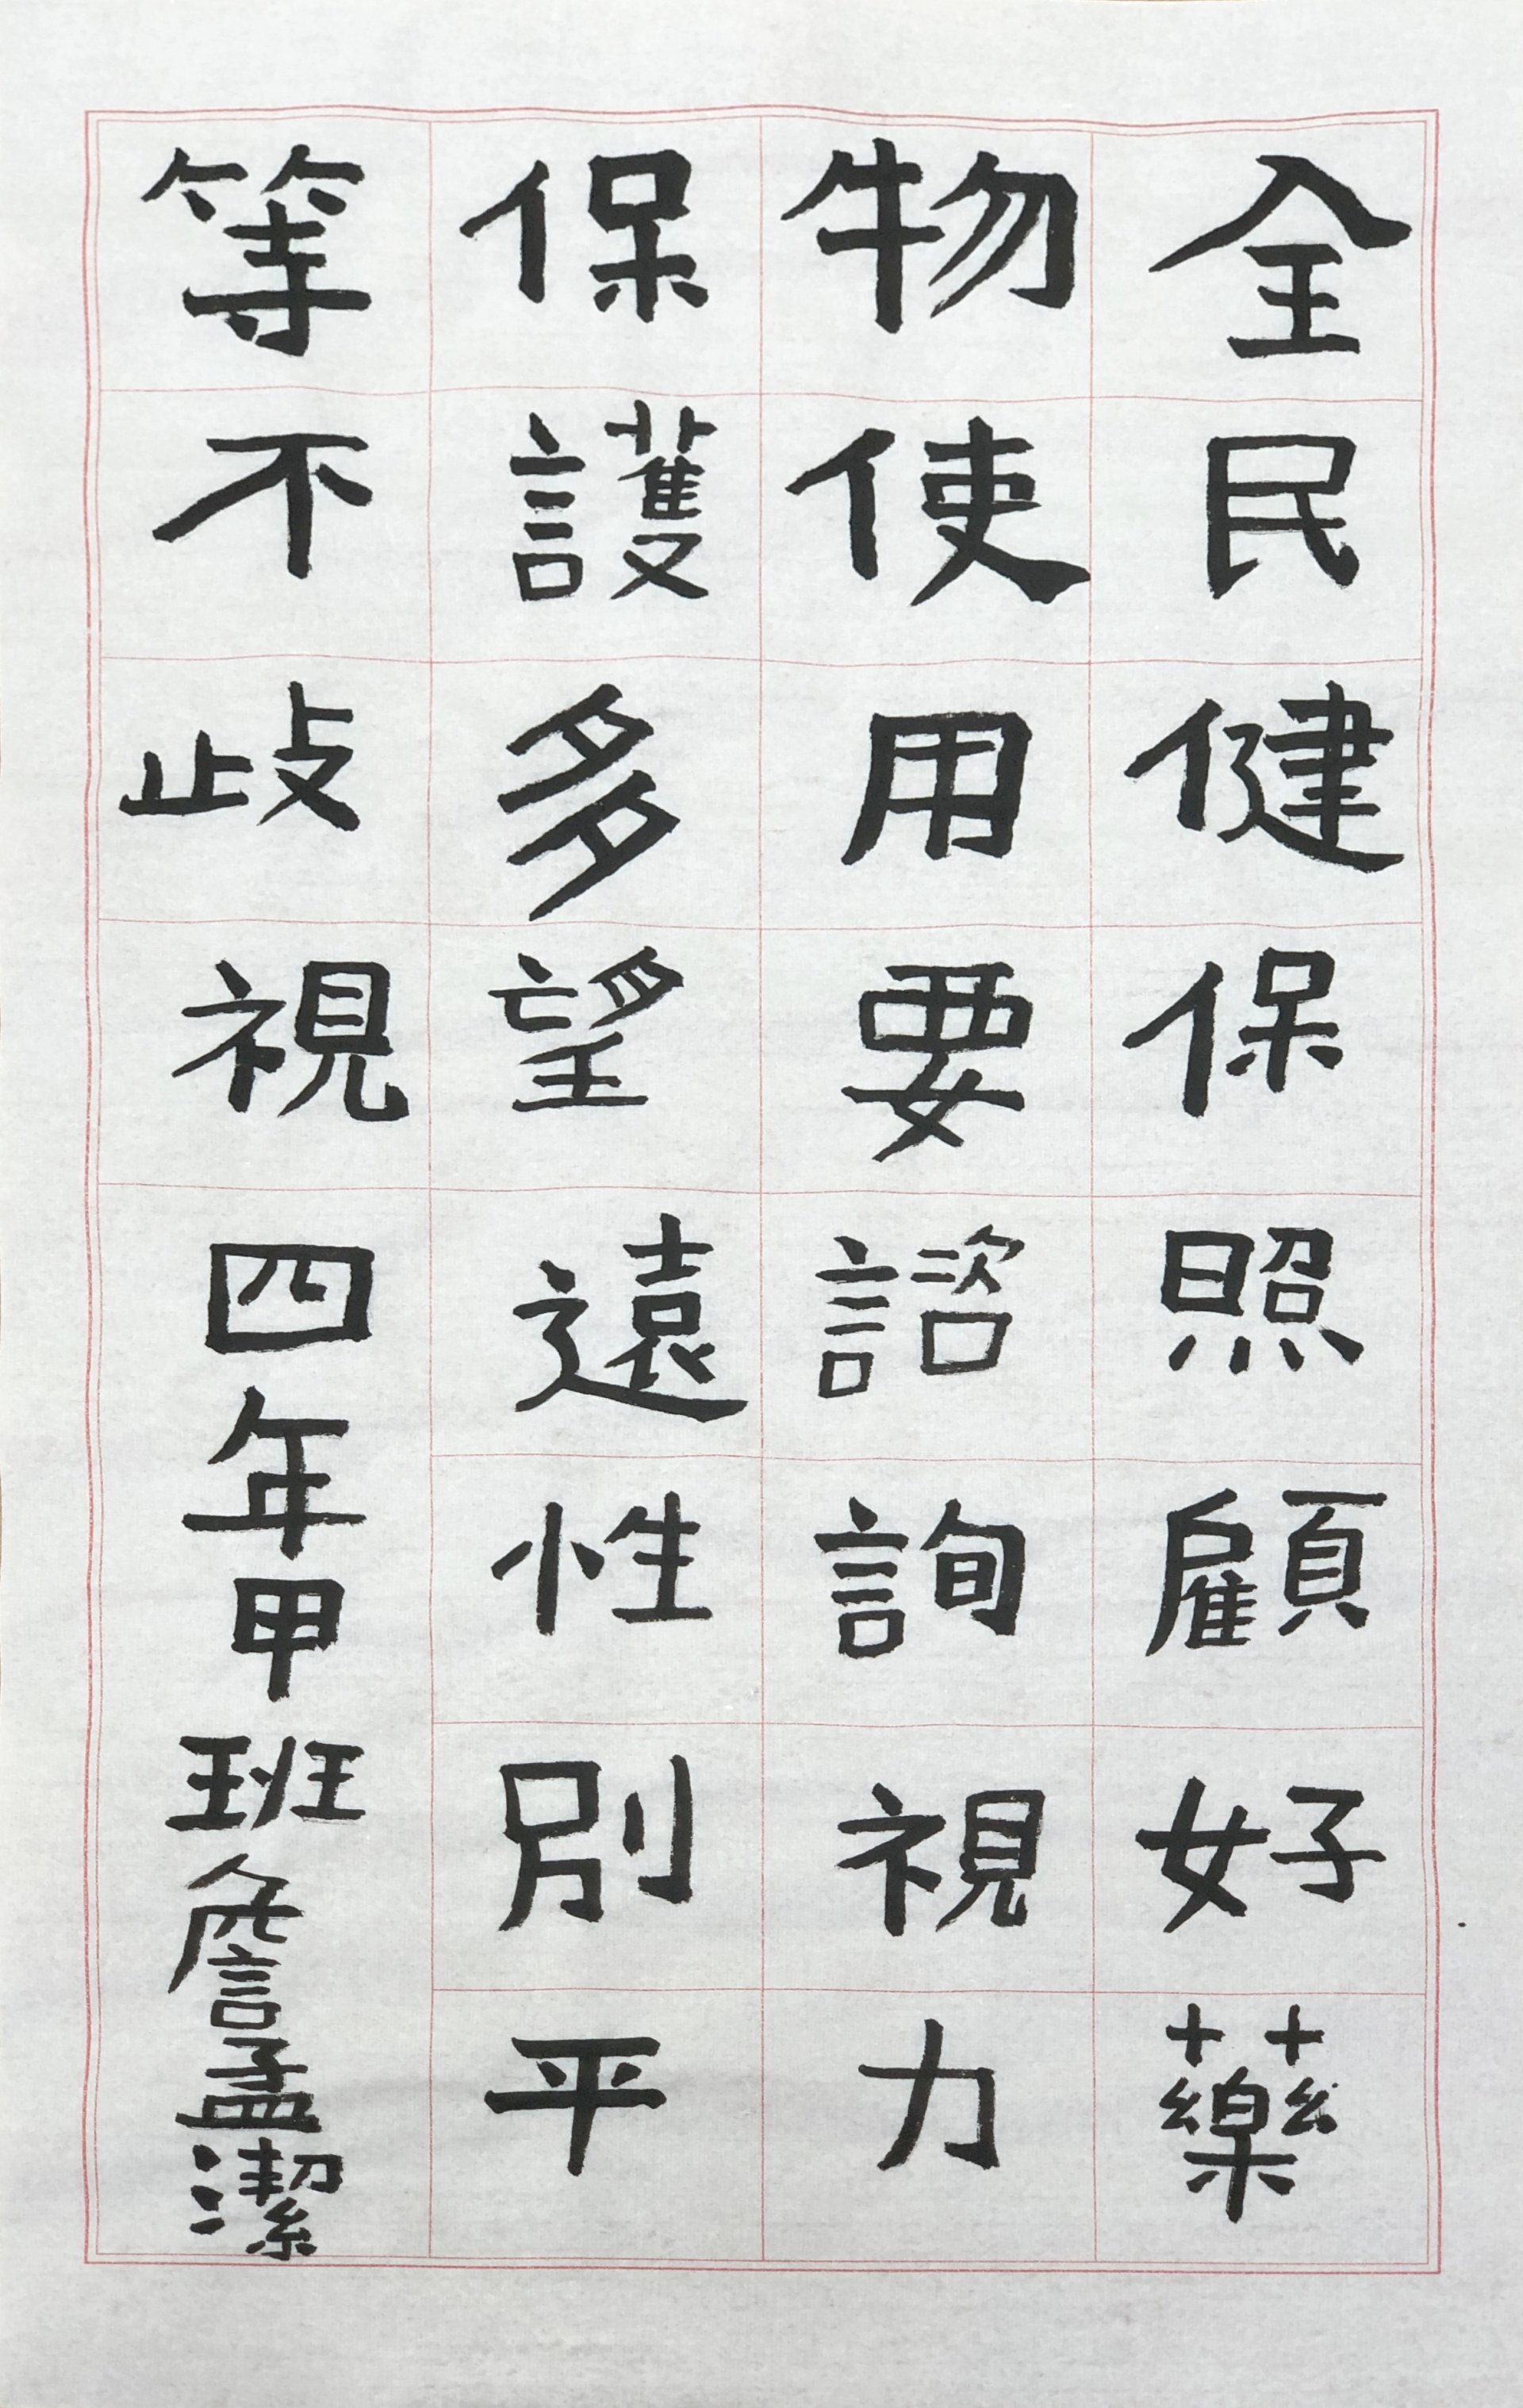 全民健保照顧好藥
物使用要諮詢視力
保護多望遠性別平
等不歧視四年甲班詹孟潔